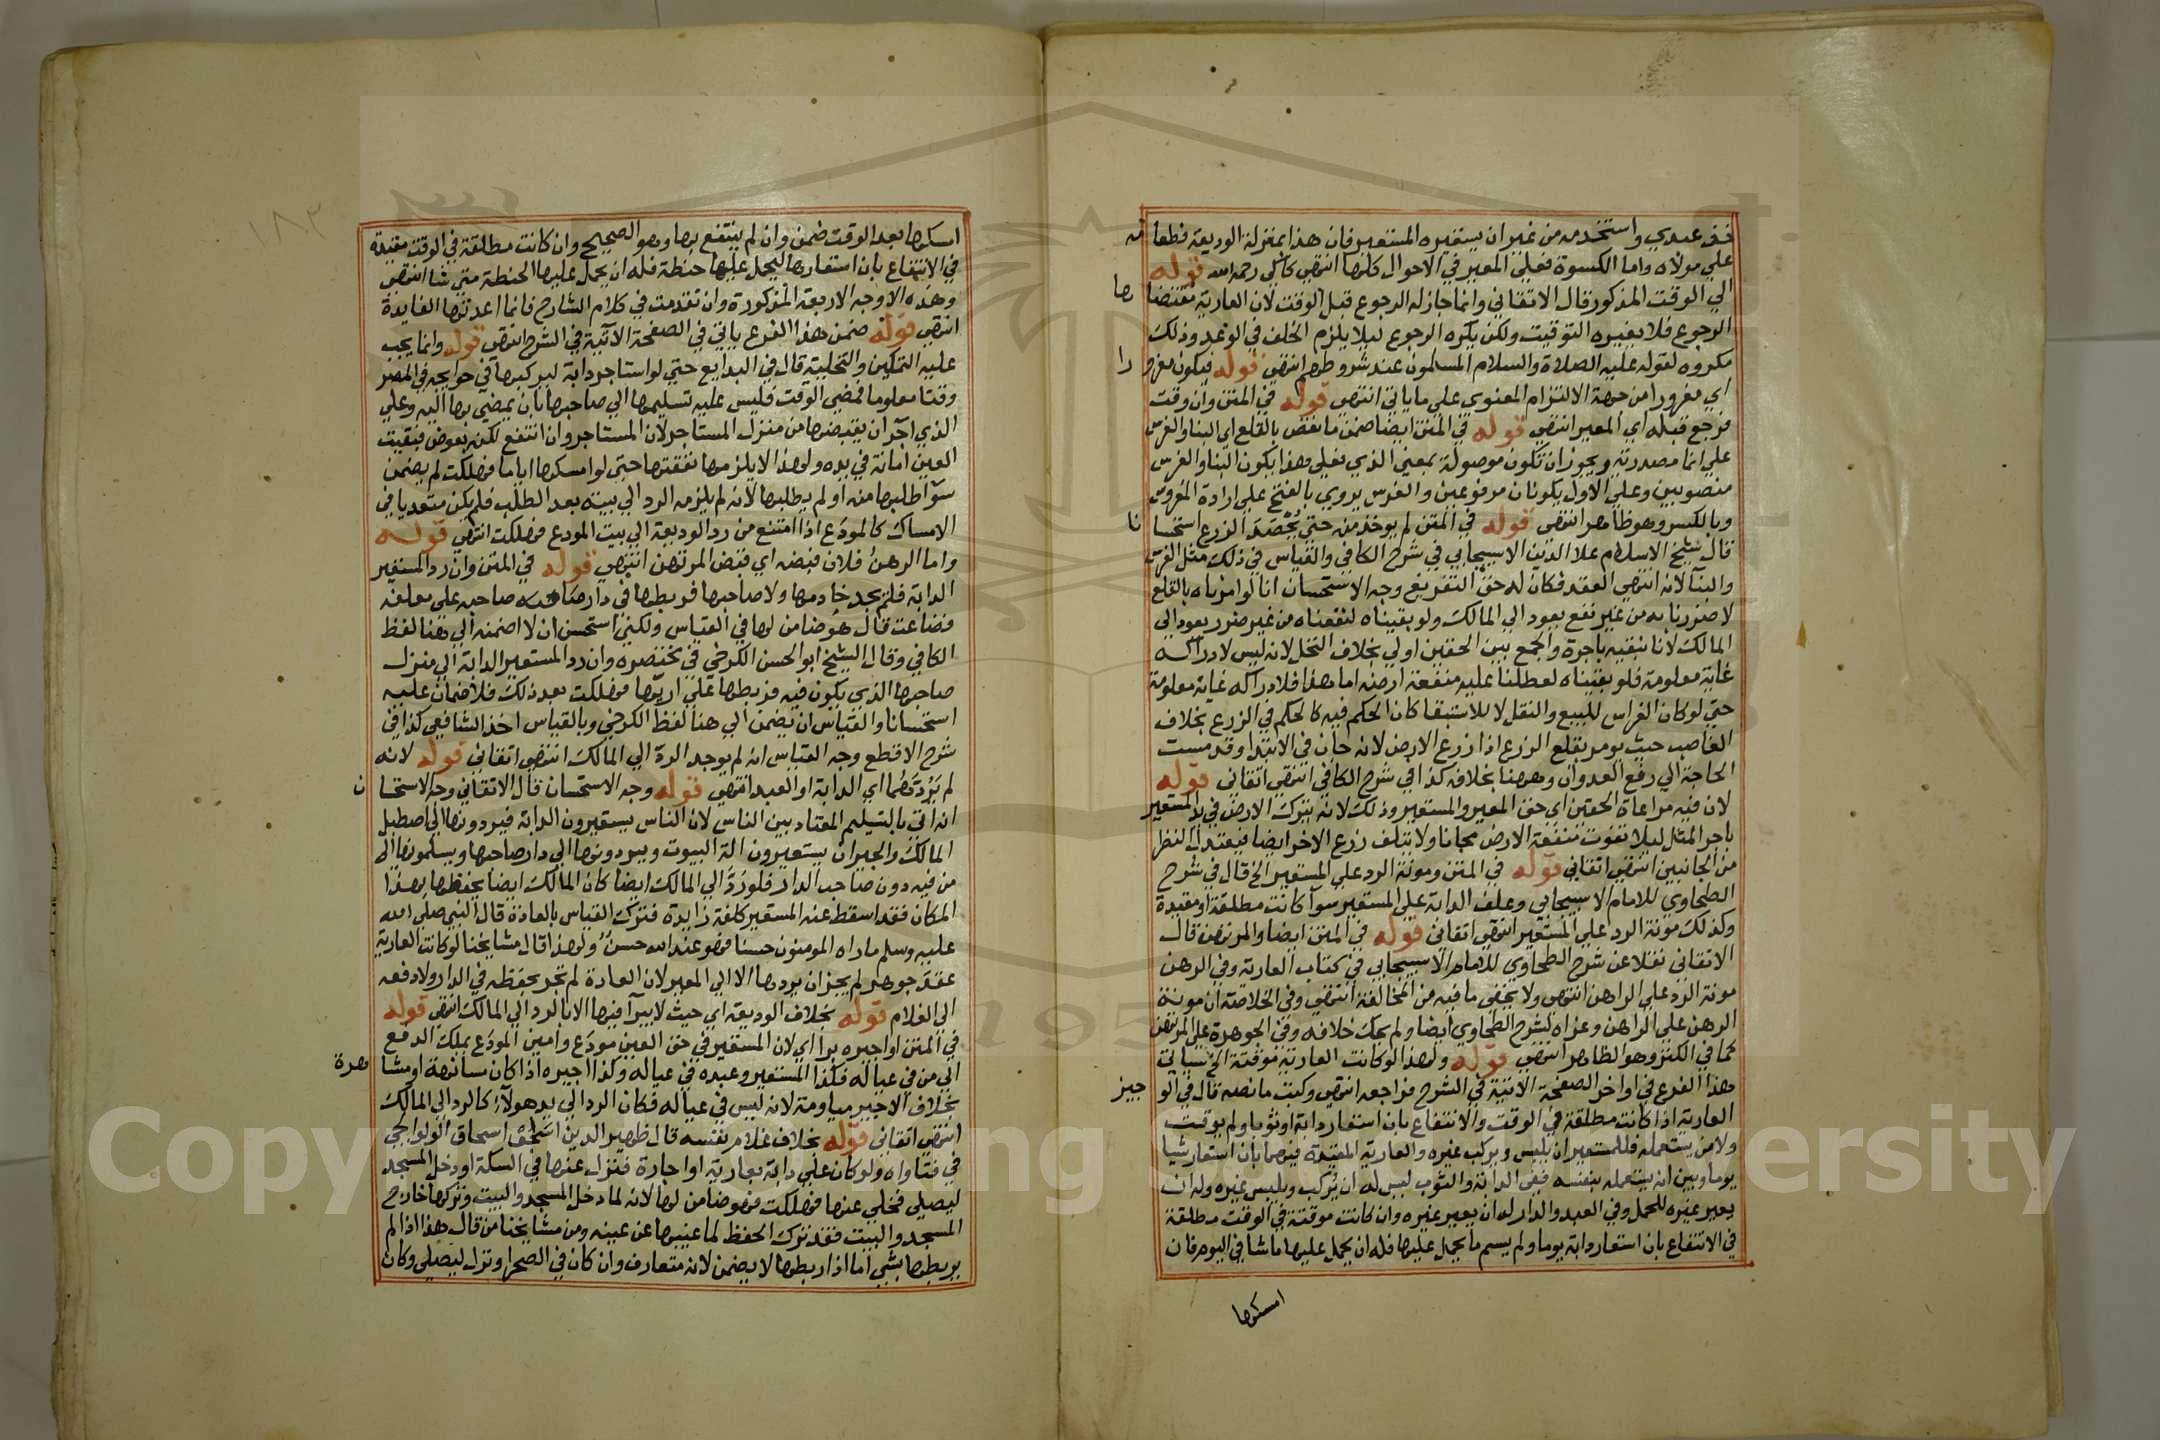 خذ عبدي واستخدمه من غير ان يستعيره المستعير فان هذا بمنزلة الوديعة فطعامه
علي مولاه واما الكسوة فعلي المعير في الاحوال كلها انتهي كاكي رحمه الله قوله
الي الوقت المذكور قال الاتقاني وانما جاز له الرجوع قبل الوقت لان العارية مقتضاها
الرجوع فلا يغيره التوقيت ولكن يكره الرجوع ليلا يلزم الخلف في الوعد وذلك
مكروه لقوله عليه الصلاة والسلام المسلمون عند شروطهم انتهي قوله فيكون مغرورا
اي مغرورا من جهة الالتزام المعنوي علي ما ياتي انتهي قوله في المتن وان وقت
فرجع قبله اي المعير انتهي قوله في المتن ايضا ضمن ما نقص بالقلع اي البنا والغرس
علي انما مصدرية ويجوز ان تكون موصولة بمعني الذي فعلي هذا يكون البنا والغرس
منصوبين وعلي الاول يكونان مرفوعين والغرس يروي بالفتح علي ارادة المغروس
وبالكسر وهو ظاهر انتهي قوله في المتن لم يوخذ منه حتي يُحْصَدَ الزرع استحسانا
قال شيخ الاسلام علا الدين الاسبيجابي في شرح الكافي والقياس في ذلك مثل الغرس
والبنآ لانه انتهي العقد فكان له حق التفريغ وجه الاستحسان انا لو امرناه بالقلع
لاضررنا به من غير نفع يعود الي المالك ولو بقيناه لنفعناه من غير ضرر يعود الي
المالك لانا نبقيه باجرة والجمع بين الحقين اولي بخلاف النخل لانه ليس لادراكه
غاية معلومة فلو بقيناه لعطلنا عليه منفعة ارضه اما هذا فلادراكه غاية معلومة
حتي لو كان الغراس للبيع والنقل لا للاستبقا كان الحكم فيه كالحكم في الزرع بخلاف
الغاصب حيث يومر بقلع الزرع اذا زرع الارض لانه جان في الابتدا وقد مست
الحاجة الي رفع العدوان وههنا بخلافه كذا في شرح الكافي انتهي اتقاني قوله
لان فيه مراعاة الحقين اي حق المعير والمستعير وذلك لانه يترك الارض في يد المستعير
باجر المثل ليلا تفوت منفعة الارض مجانا ولا يتلف زرع الاخر ايضا فيعتدل النظر
من الجانبين انتهي اتقاني قوله في المتن ومونة الرد علي المستعير الخ قال في شرح
الطحاوي للامام الاسبيجابي وعلف الدابة علي المستعير سوآ كانت مطلقة او مقيدة
وكذلك مونة الرد علي المستعير انتهي اتقاني قوله في المتن ايضا والمرتهن قال
الاتقاني نقلا عن شرح الطحاوي للامام الاسبيجابي في كتاب العارية وفي الرهن
مونة الرد علي الراهن انتهي ولا يخفي ما فيه من المخالفة انتهي وفي الخلاصة ان مونة
الرهن علي الراهن وعزاه لشرح الطحاوي ايضا ولم يحك خلافه وفي الجوهرة علي المرتهن
كما في الكنز وهو الظاهر انتهي قوله ولهذا لو كانت العارية موقتة الخ سياتي
هذا الفرع في اواخر الصفحة الاتية في الشرح فراجعه انتهي وكتب ما نصه قال في الوجيز
العارية اذا كانت مطلقة في الوقت والانتفاع بان استعار دابة او ثوبا ولم يوقت
ولا من يستعمله فللمستعير ان يلبس ويركب غيره والعارية المقيدة فيهما بان استعار شيا
يوما وبين انه يستعمله بنفسه ففي الدابة والثوب ليس له ان يُركب ويلبس غيره وله ان
يعير غيره للحمل وفي العبد والدار له ان يعير غيره وان كانت موقتة في الوقت مطلقة
في الانتفاع بان استعار دابة يوما ولم يسم ما يحمل عليها فله ان يحمل عليها ما شا في اليوم فان
امسكها
امسكها بعد الوقت ضمن وان لم ينتفع بها وهو الصحيح وان كانت مطلقة في الوقت مقيدة
في الانتفاع بان استعارها ليحمل عليها حنطة فله ان يحمل عليها الحنطة متي شا انتهي
وهذه الاوجه الاربعة المذكورة وان تقدمت في كلام الشارح فانما اعدتها الفايدة
انتهي قوله ضمن هذا الفرع ياتي في الصفحة الآتية في الشرح انتهي قوله وانما يجب
عليه التمكين والتخلية قال في البدايع حتي لو استاجر دابة ليركبها في حوايجه في المصر
وقتا معلوما فمضي الوقت فليس عليه تسليمها الي صاحبها بان يمضي بها اليه وعلي
الذي اجر ان يقبضها من منزل المستاجر لان المستاجر وان انتفع لكن بعوض فبقيت
العين امانة في يده ولهذا لا يلزمها نفقتها حتي لو امسكها اياما فهلكت لم يضمن
سوآ طلبها منه او لم يطلبها لانه لم يلزمه الرد الي بيته بعد الطلب فلم يكن متعديا في
الامساك كالمودَع اذا امتنع من رد الوديعة الي بيت المودع فهلكت انتهي قوله
واما الرهنُ فلان قبضه اي قبض المرتهن انتهي قوله في المتن وان رد المستعير
الدابة فلم يجد خادمها ولا صاحبها فربطها في دار صاحبه علي معلفه
فضاعت قال هو ضامن لها في القياس ولكني استحسن ان لا اضمنه الي هنا لفظ
الكافي وقال الشيخ ابو الحسن الكرخي في مختصره وان رد المستعير الدابة الي منزل
صاحبها الذي يكون فيه فربطها علي اريّها فهلكت بعد ذلك فلا ضمان عليه
استحسانا والقياس ان يضمن الي هنا لفظ الكرخي وبالقياس اخذ الشافعي كذا في
شرح الاقطع وجه القياس انه لم يوجد الرد الي المالك انتهي اتقاني قوله لانه
لم يَرُدَّهُما اي الدابة او العبد انتهي قوله وجه الاستحسان قال الاتقاني وجه الاستحسان
انه اتي بالتسليم المعتاد بين الناس لان الناس يستعيرون الدابة فيردونها الي اصطبل
المالك والجيران يستعيرون الة البيوت ويردونها الي دار صاحبها ويسلمونها الي
من فيه دون صاحب الدار فلو رَدَّ الي المالك ايضا كان المالك ايضا يحفظها بهذا
المكان فقد اسقط عنه المستعير كلفة زايدة فترك القياس بالعادة قال النبي صلي الله
عليه وسلم ما راه المومنون حسنا فهو عند الله حسنٌ ولهذا قال مشايخنا لو كانت العارية
عقدَ جوهر لم يجز ان يردها الا الي المعير لان العادة لم تجر بحفظه في الدار ولا دفعه
الي الغلام قوله بخلاف الوديعة اي حيث لا يبرآ فيها الا بالرد الي المالك انتهي قوله
في المتن او اجيره برا اي لان المستعير في حق العين مودَع وامين المودَع يملك الدفع
الي من في عياله فكذا المستعير وعبده في عياله وكذا اجيره اذا كان مسانهة او مشاهرة
بخلاف الاجير مياومة لانه ليس في عياله فكان الرد الي يد هولآءِ كالرد الي المالك
انتهي اتقاني قوله بخلاف غلام نفسه قال ظهير الدين اسحق الولوالجي
في فتاواه ولو كان علي دابة بعارية او اجارة فنزل عنها في السكة او دخل المسجد
ليصلي فخلي عنها فهلكت فهو ضامن لها لانه لما دخل المسجد والبيت وتركها خارج
المسجد والبيت فقد ترك الحفظ لما غيبها عن عينه ومن مشايخنا من قال هذا اذا لم
يربطها بشي اما اذا ربطها لا يضمن لانه متعارف وان كان في الصحرا ونزل ليصلي وكان